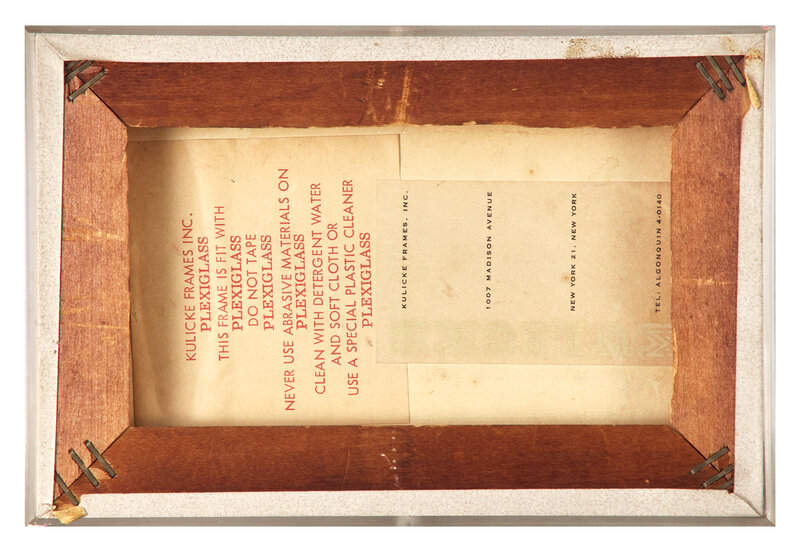 KULICKE FRAMES INC.
PLEXIGLASS
THIS FRAME IS FIT WITH
PLEXIGLASS
DO NOT TAPE
PLEXIGLASS
NEVER USE ABRASIVE MATERIALS ON
PLEXIGLASS
CLEAN WITH DETERGENT WATER
AND SOFT CLOTH OR
USE A SPECIAL PLASTIC CLEANER
PLEXIGLASS
KULICKE FRAMES, INC.
1007 MADISON AVENUE
NEW YORK 21, NEW YORK
TEL: ALGONQUIN 4-0140